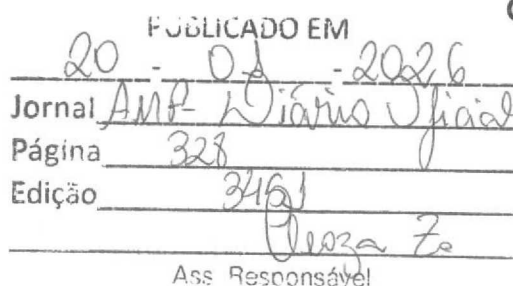 PUBLICADO EM
20 - 01 - 2026
Jornal AMP- Diário Oficial
Página 328
Edição 3451
Ass. Responsável